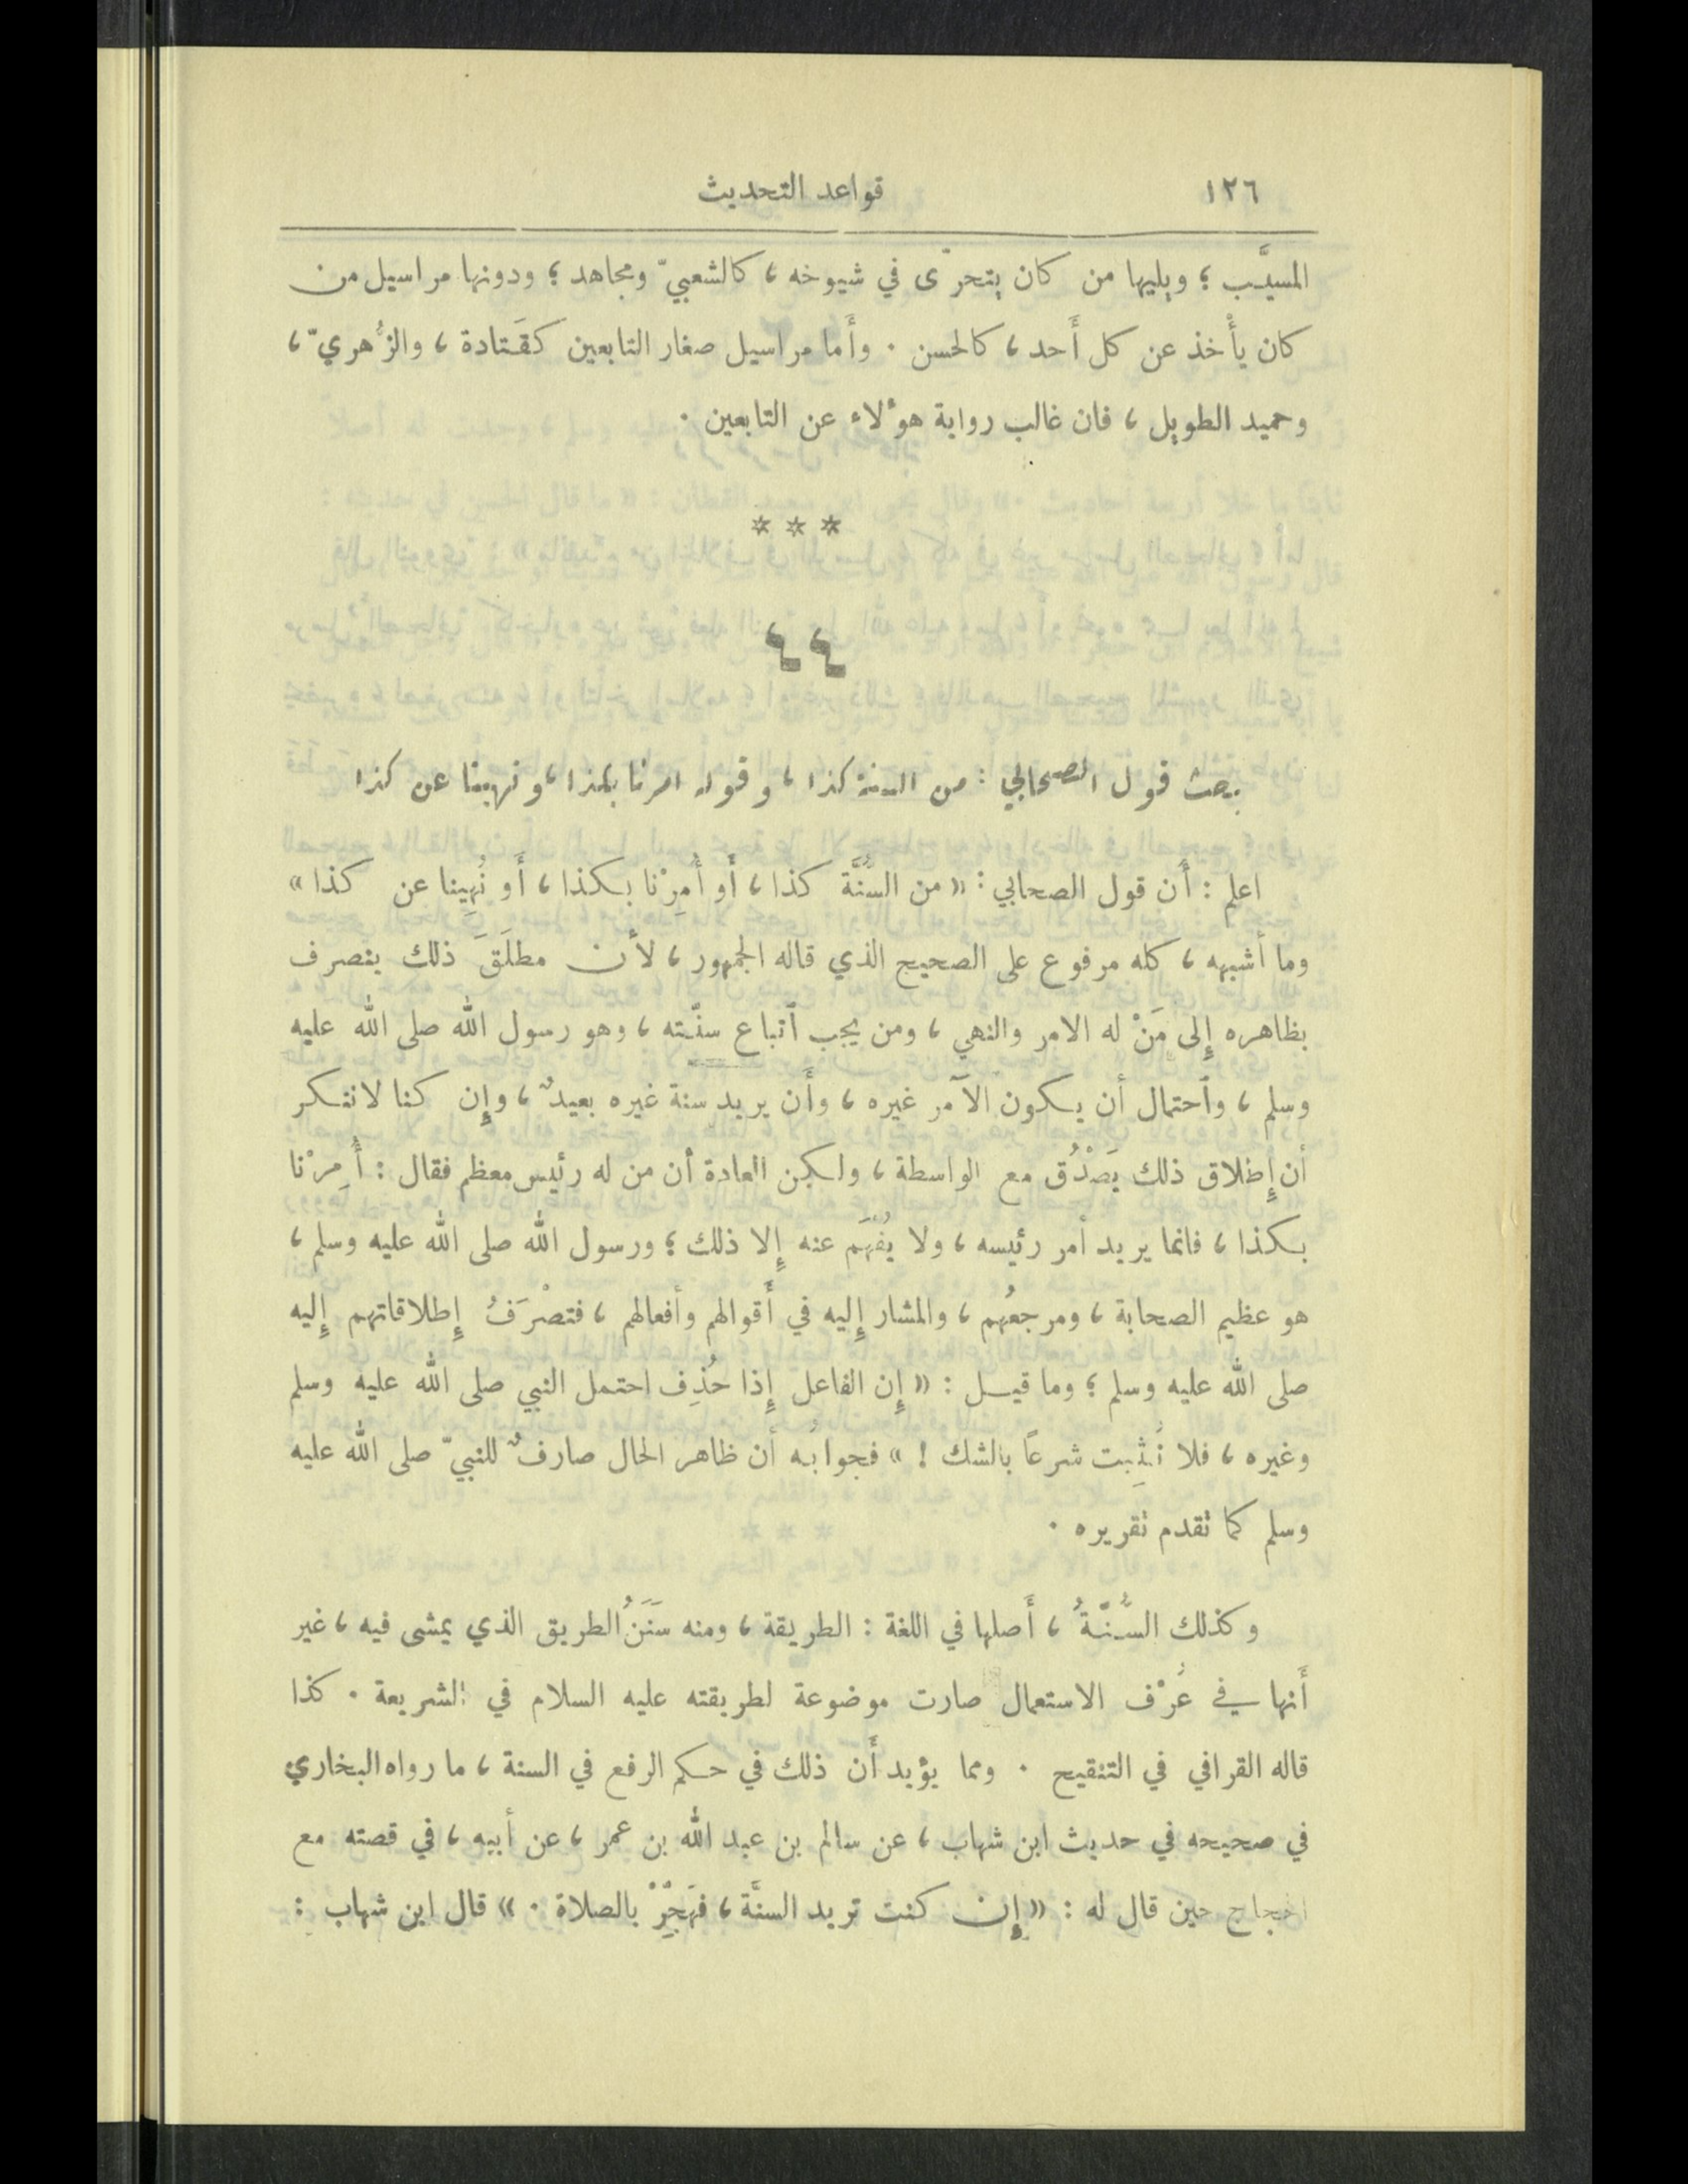 ١٢٦ قواعد التحديث
المسيَّب ؛ ويليها من كان يتحرّى في شيوخه ، كالشعبيّ ومجاهد ؛ ودونها مراسيل من
كان يأْخذ عن كل أَحد ، كالحسن . وأَما مراسيل صغار التابعين كقَتادة ، والزُّهريّ ،
وحميد الطويل ، فان غالب رواية هوٴلاء عن التابعين .
* * *
٤٤
بحث قول الصحابي : من السنة كذا ، وقوله امرنا بكذا ، ونهينا عن كذا
اعلم : أَن قول الصحابي : « من السُّنَّة كذا ، أَو أُمِرْنا بكذا ، أَو نُهِينا عن كذا »
وما أشبهه ، كله مرفوع على الصحيح الذي قاله الجمهور ، لأن مطلَقَ ذلك ينصرف
بظاهره إِلى مَنْ له الامر والنهي ، ومن يجب ٱتباع سنّته ، وهو رسول الله صلى الله عليه
وسلم ، وٱحتمال أن يكون الآمر غيره ، وأَن يريد سنة غيره بعيدٌ ، وإِن كنا لا ننكر
أن إِطلاق ذلك يَصْدُق مع الواسطة ، ولكن العادة أن من له رئيس معظم فقال : أُمِرْنا
بكذا ، فانما يريد أمر رئيسه ، ولا يُفْهَم عنه إِلا ذلك ؛ ورسول الله صلى الله عليه وسلم ،
هو عظيم الصحابة ، ومرجعُهم ، والمشار إِليه في أَقوالهم وأفعالهم ، فتصْرَفُ إِطلاقاتهم إِليه
صلى الله عليه وسلم ؛ وما قيل : « إِن الفاعل إِذا حُذِف احتمل النبي صلى الله عليه وسلم
وغيره ، فلا نُثْبِت شرعًا بالشك ! » فجوابُه أن ظاهر الحال صارفٌ للنبيّ صلى الله عليه
وسلم كما تقدم تقريره .
وكذلك السُّنّةُ ، أَصلها في اللغة : الطريقة ، ومنه سَنَنُ الطريق الذي يمشى فيه ، غير
أَنها في عُرْف الاستعمال صارت موضوعة لطريقته عليه السلام في الشريعة . كذا
قاله القرافي في التنقيح . ومما يؤيد أَن ذلك في حكم الرفع في السنة ، ما رواه البخاري
في صحيحه في حديث ابن شهاب ، عن سالم بن عبد الله بن عمر ، عن أبيه ، في قصته مع
الحجاج حين قال له : « إِن كنت تريد السنَّة ، فهَجِّرْ بالصلاة . » قال ابن شهاب :